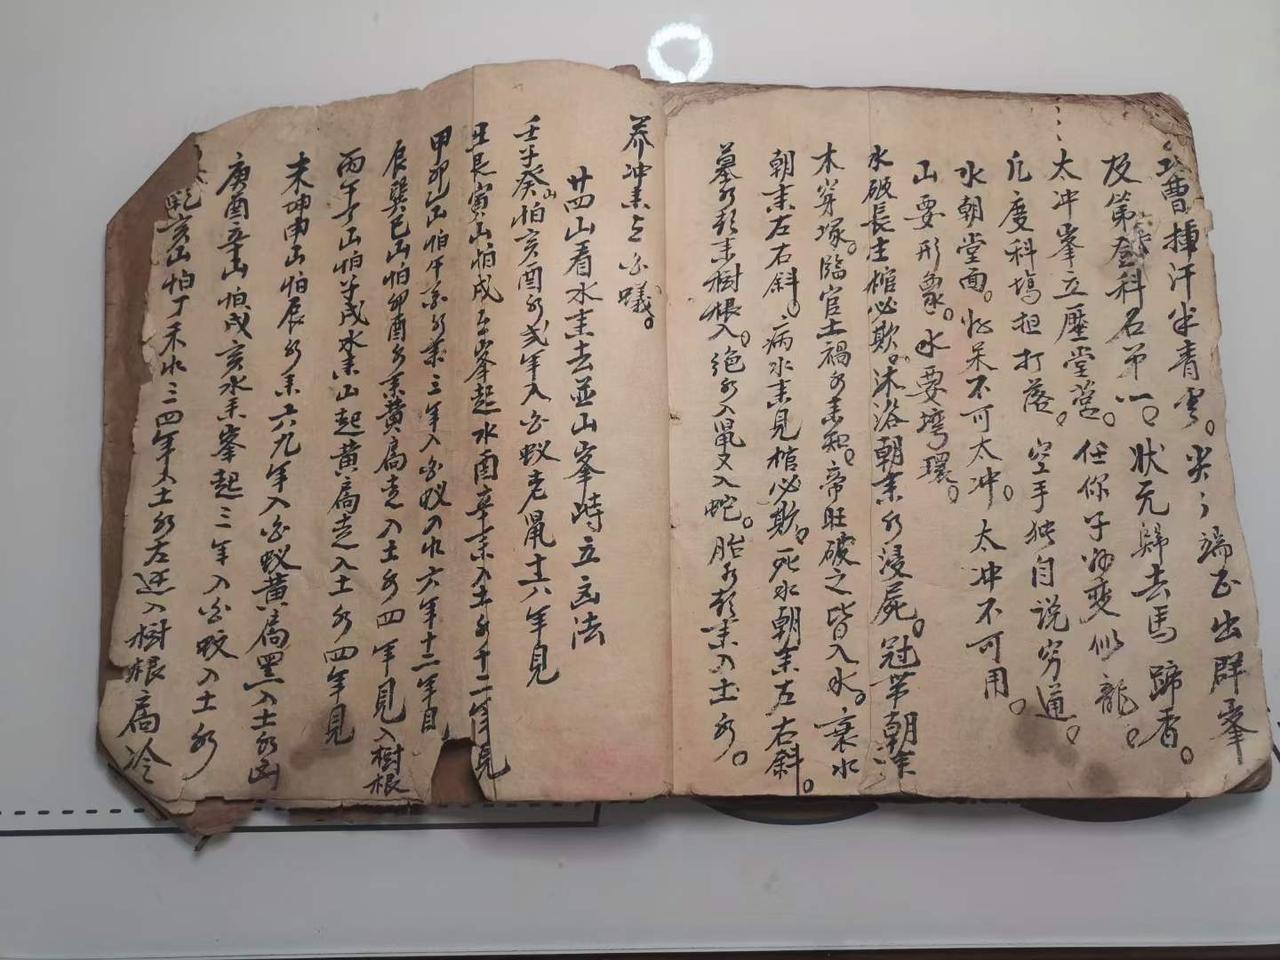 曹揮汗半青雲。尖〻端正出群峯
及第登科名第一。狀元歸去馬蹄香。
太冲峯立壓堂營。任你子孫變似龍。
几度科塲担打落。空手独自说穷通。
水朝堂面。不可太冲。太冲不可用。
山要形象。水要塆環。
水破長生棺必欺。沐浴朝来水浸屍。冠帯朝来
木穿塚。臨官土禍水来。帝旺破之皆入水。衰水
朝来左右斜。病水来見棺必欺。死水朝来左右斜。
墓水来樹根入。绝水入鼠又入蛇。胎水来入土水。
养冲来白蟻。
廿四山看水来去並山峯時立法
壬子癸山怕亥酉水弍年入白蚁老鼠十六年見
丑艮寅山怕戌峯起水酉辛来入土水十二年見
甲卯山怕午水三年入白蚁入水六年十二年
辰巽巳山怕卯酉水来黄扄走入土水四年見入樹根
丙午丁山怕子戌水来山起黄扄走入土水四年見
未坤申山怕辰水来六九年入白蚁黄扄黑入土水
庚酉辛山怕戌亥水来峯起三年入白蚁入土水
乾亥山怕丁未水三四年入土水左边入樹根扄冷